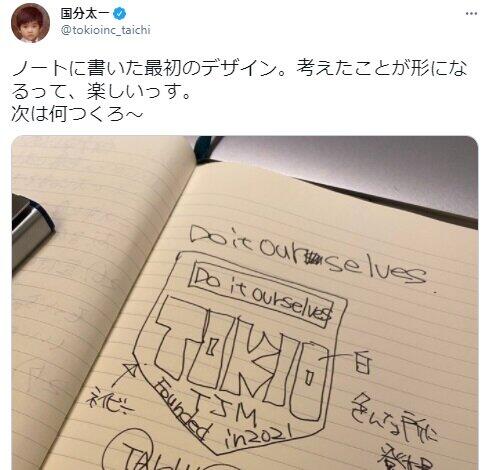 国分太一
@tokioinc_taichi
ノートに書いた最初のデザイン。考えたことが形にな
るって、楽しいっす。
次は何つくろ～
Do it ourselves
Do it ourselves
TOKIO
白
TJM
Founded in 2021
ネイビー
色んな所に